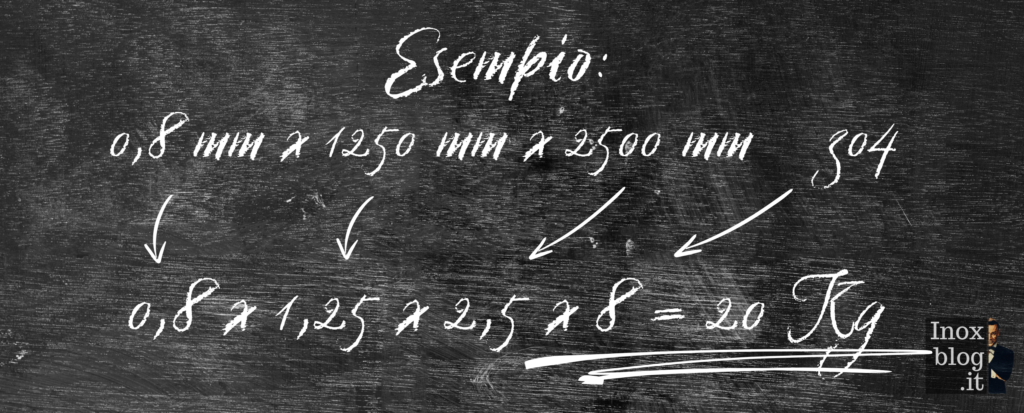 Esempio:
0,8 mm x 1250 mm x 2500 mm 304
0,8 x 1,25 x 2,5 x 8 = 20 Kg
Inox
blog
.it